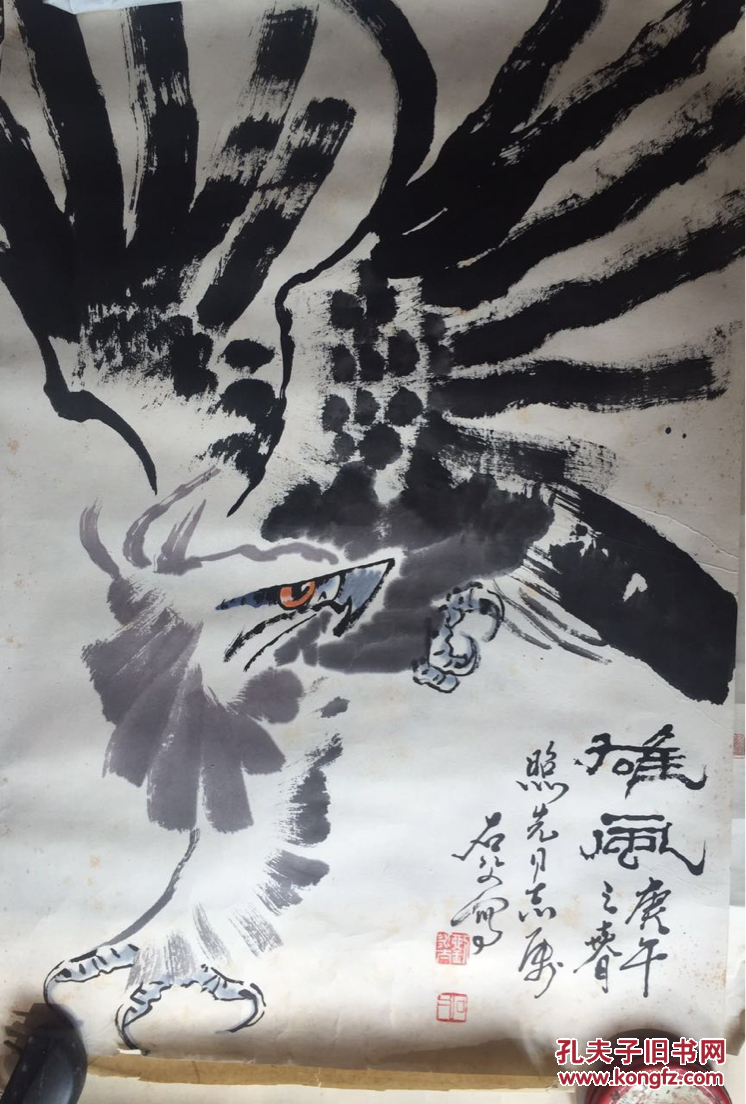 雄風
庚午
之春
照先同志属
石父寫
孔夫子旧书网
www.kongfz.com